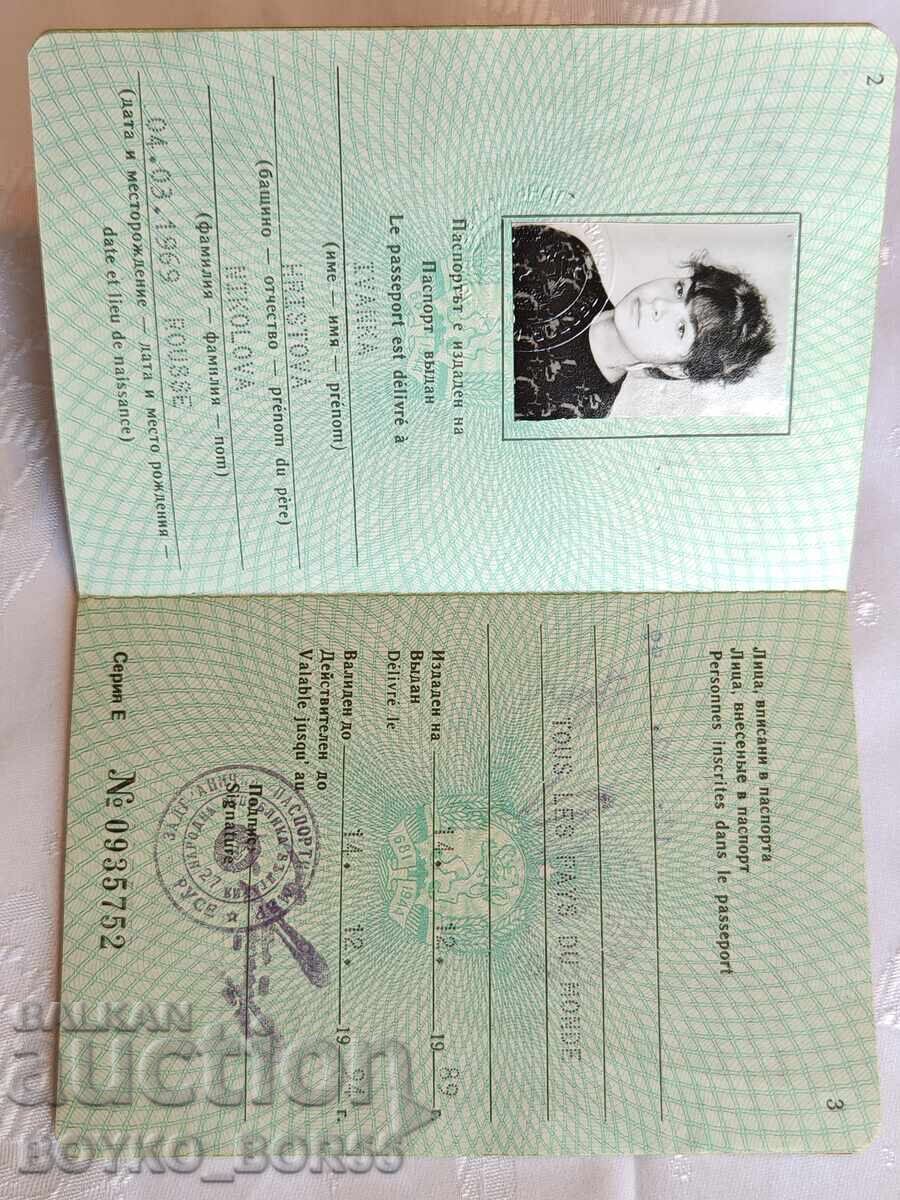 2
Паспортът е издаден на
Паспорт выдан
Le passeport est délivré à
IVANKA
(име — имя — prénom)
HRISTOVA
(бащино — отчество — prénom du père)
NIKOLOVA
(фамилия — фамилия — nom)
04.03.1969 ROUSSE
(дата и месторождение — дата и место рождения —
date et lieu de naissance)
3
Лица, вписани в паспорта
Лица, внесенные в паспорт
Personnes inscrites dans le passeport
TOUS LES PAYS DU MONDE
Издаден на
Выдан
Délivré le
14. 12. 19 89 г.
Валиден до
Действителен до
Valable jusqu' au
14. 12. 19 94 г.
681 1944
Подпис
Signature
НАРОДНА
РУСЕ
27
Серия Е № 0935752
BALKAN
auction
BOYKO_BORSS